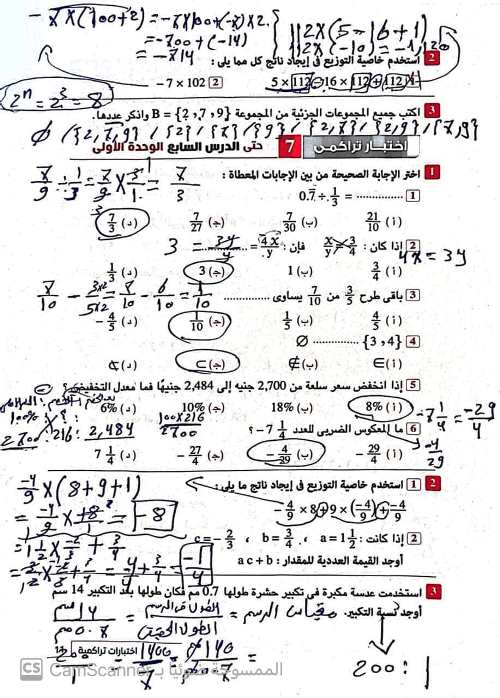 - 7 × (100 + 2) = - 7 × 100 + (- 7) × 2.
= - 700 + (- 14)
= - 714
112 × (5 - 16 + 1)
112 × (- 10) = - 1,120
2 استخدم خاصية التوزيع في إيجاد ناتج كل مما يلى :
5 × 112 - 16 × 112 + 112 1
- 7 × 102 2
2ⁿ = 2³ = 8
3 اكتب جميع المجموعات الجزئية من المجموعة B = {2 ، 7 ، 9} واذكر عددها.
∅ / {2,7,9} / {2} / {7} / {9} / {2,7} / {2,9} / {7,9}
اختبار تراكمى 7 حتى الدرس السابع الوحدة الأولى
1 اختر الإجابة الصحيحة من بين الإجابات المعطاة :
7/9 ÷ 1/3 = 7/9 × 3/1 = 7/3
1 0.7̇ ÷ 1/3 = ...............
(أ) 21/10 (ب) 7/30 (ج) 7/27 (د) 7/3
2 إذا كان : x/y = 3/4 فإن : 4x/y = ............... 3y/y = 3
4x = 3y
(أ) 3/4 (ب) 1 (ج) 3 (د) 1/3
3 باقى طرح 3/5 من 7/10 يساوى ...............
7/10 - 3×2/5×2 = 7/10 - 6/10 = 1/10
(أ) 4/5 (ب) 1/5 (ج) 1/10 (د) - 4/5
4 {3 ، 4} ............... ∅
(أ) ∈ (ب) ∉ (ج) ⊂ (د) ⊄
5 إذا انخفض سعر سلعة من 2,700 جنيه إلى 2,484 جنيهًا فما معدل التخفيض ؟
(أ) 8% (ب) 18% (ج) 10% (د) 6%
100% : ؟
2700 : 216 : 2,484
100×216/2700
6 ما المعكوس الضربى للعدد - 7 1/4 ؟
- 7 1/4 = -29/4
-4/29
(أ) - 29/4 (ب) - 4/29 (ج) - 27/4 (د) 7 1/4
2 1 استخدم خاصية التوزيع فى إيجاد ناتج ما يلى :
- 4/9 × 8 + 9 × (- 4/9) + - 4/9
-4/9 × (8 + 9 + 1)
= -4/9 × 18/1 = - 8
2 إذا كانت : a = 1 1/2 ، b = 3/4 ، c = - 2/3
أوجد القيمة العددية للمقدار : a c + b
= 1 1/2 × -2/3 + 3/4
= 3/2 × -2/3 + 3/4 = -4/4 + 3/4 = -1/4
3 استخدمت عدسة مكبرة فى تكبير حشرة طولها 0.7 مم فكان طولها بعد التكبير 14 سم
أوجد نسبة التكبير.
مقياس الرسم = الطول فى الرسم / الطول الحقيقى
اختبارات تراكمية
200 : 1
CS CamScanner الممسوحة ضوئيا بـ